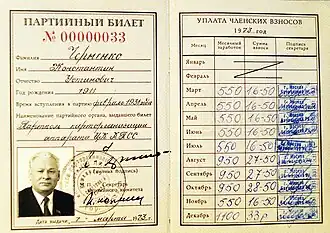 ПАРТИЙНЫЙ БИЛЕТ
№ 00000033
Фамилия Черненко
Имя Константин
Отчество Устинович
Год рождения 1911
Время вступления в партию февраль 1931 года
Наименование партийного органа, выдавшего билет
Парткомом парторганизации
аппарата ЦК КПСС
(личная подпись)
Секретарь
комитета
Дата выдачи марта 1973 г.
УПЛАТА ЧЛЕНСКИХ ВЗНОСОВ
1973 год
Месяц Месячный заработок Сумма взноса Подпись секретаря
Январь
Февраль
Март 550 16-50 г. Москва
Апрель 550 16-50 г. Москва
Май 550 16-50 г. Москва
Июнь 550 16-50 г. Москва
Июль 560 16-80
Август 950 27-50 г. Москва
Сентябрь 950 27-50 г. Москва
Октябрь 950 28-50 г. Москва
Ноябрь 550 16-50 г. Москва
Декабрь 1100 33р г. Москва